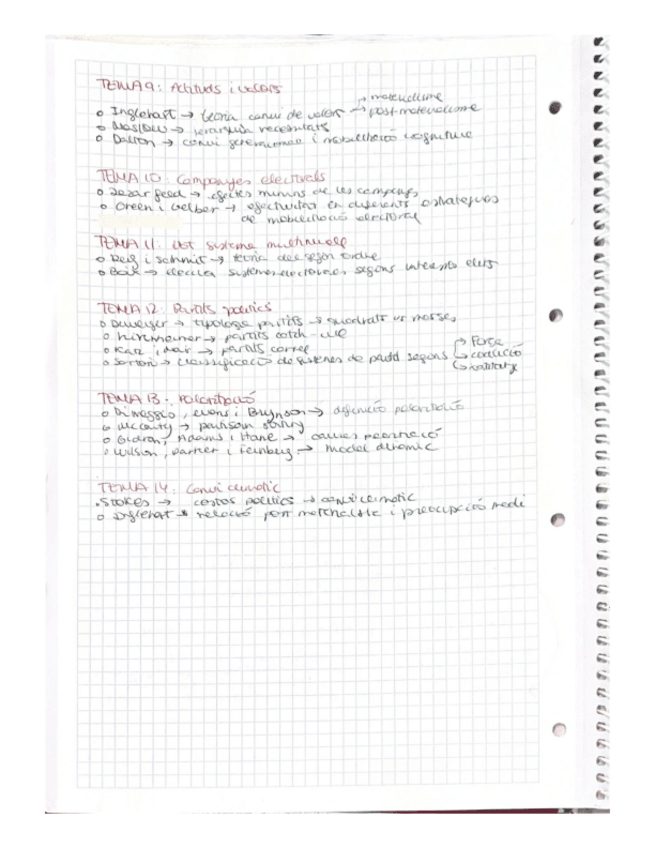 TEMA 9: Actituds i valors
o Inglehart → teoria canvi de valors → materialisme
→ post-materialisme
o Maslow → jerarquia necessitats
o Dalton → canvi generacional i mobilització cognitiva
TEMA 10: Campanyes electorals
o Lazarsfeld → efectes mínims de les campanyes
o Green i Gerber → efectivitat en diferents estratègies
de mobilització electoral
TEMA 11: sistema multinivell
o Reif i Schmitt → teoria de segon ordre
o Boix → sistemes electorals segons interessos elits
TEMA 12: Partits polítics
o Duverger → tipologia partits → quadrats vs masses
o Kirchheimer → partits catch-all
o Katz i Mair → partits carrel
o Sartori → classificació de sistemes de partit segons → Força
→ coalició
→ xantatge
TEMA 13: Polarització
o Dimaggio, Evans i Brynson → definició polarització
o McCarty → partisan sorting
o Gidron, Adams i Horne → causes
o Wilson, Parker i Feinberg → model dinamic
TEMA 14: Canvi climatic
. STOKES → costos polítics → canvi climatic
o Inglehart → relació post materialista i preocupació medi